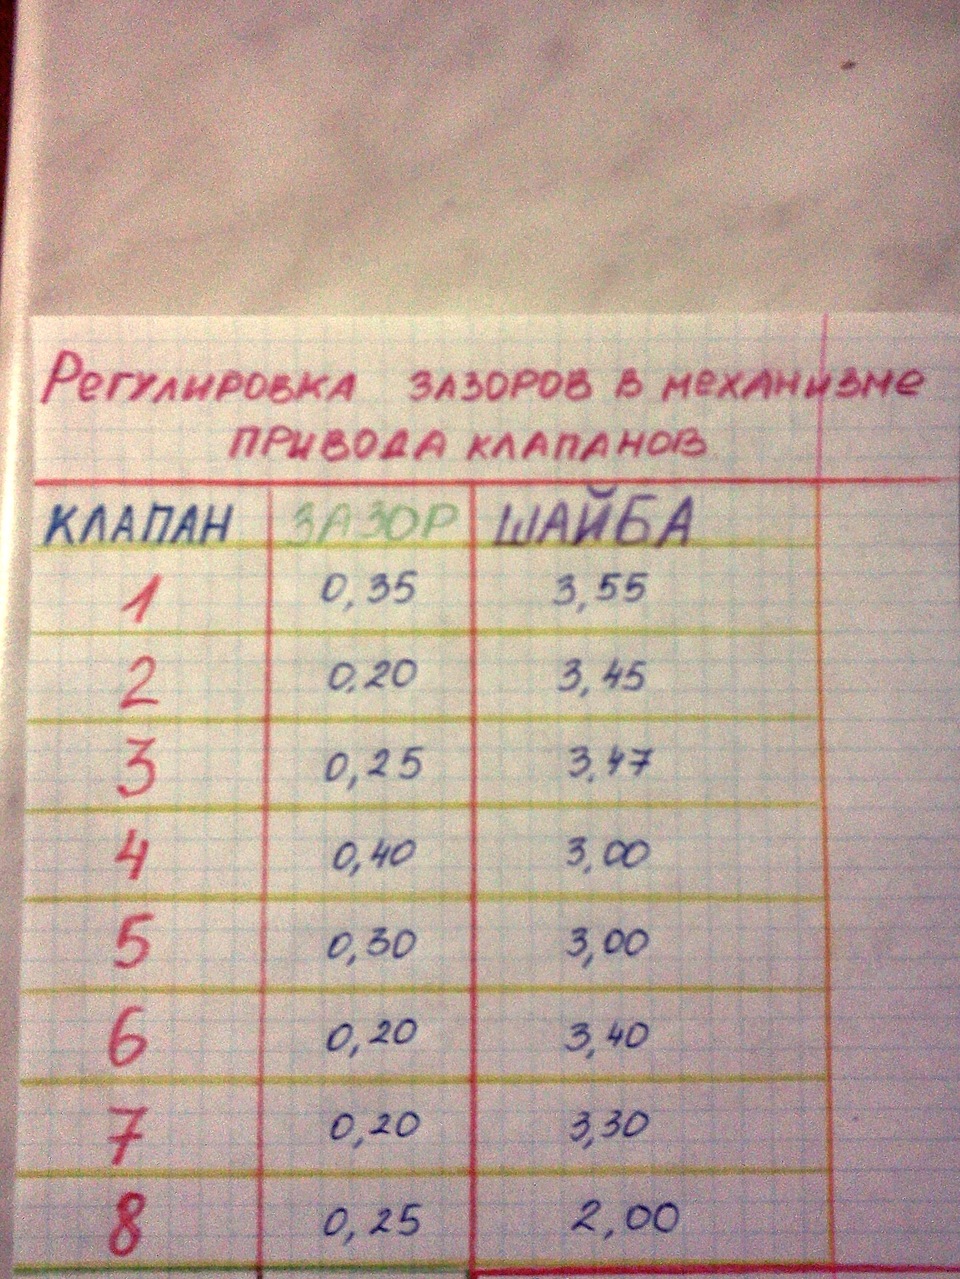 Регулировка зазоров в механизме
привода клапанов
КЛАПАН ЗАЗОР ШАЙБА
1 0,35 3,55
2 0,20 3,45
3 0,25 3,47
4 0,40 3,00
5 0,30 3,00
6 0,20 3,40
7 0,20 3,30
8 0,25 2,00